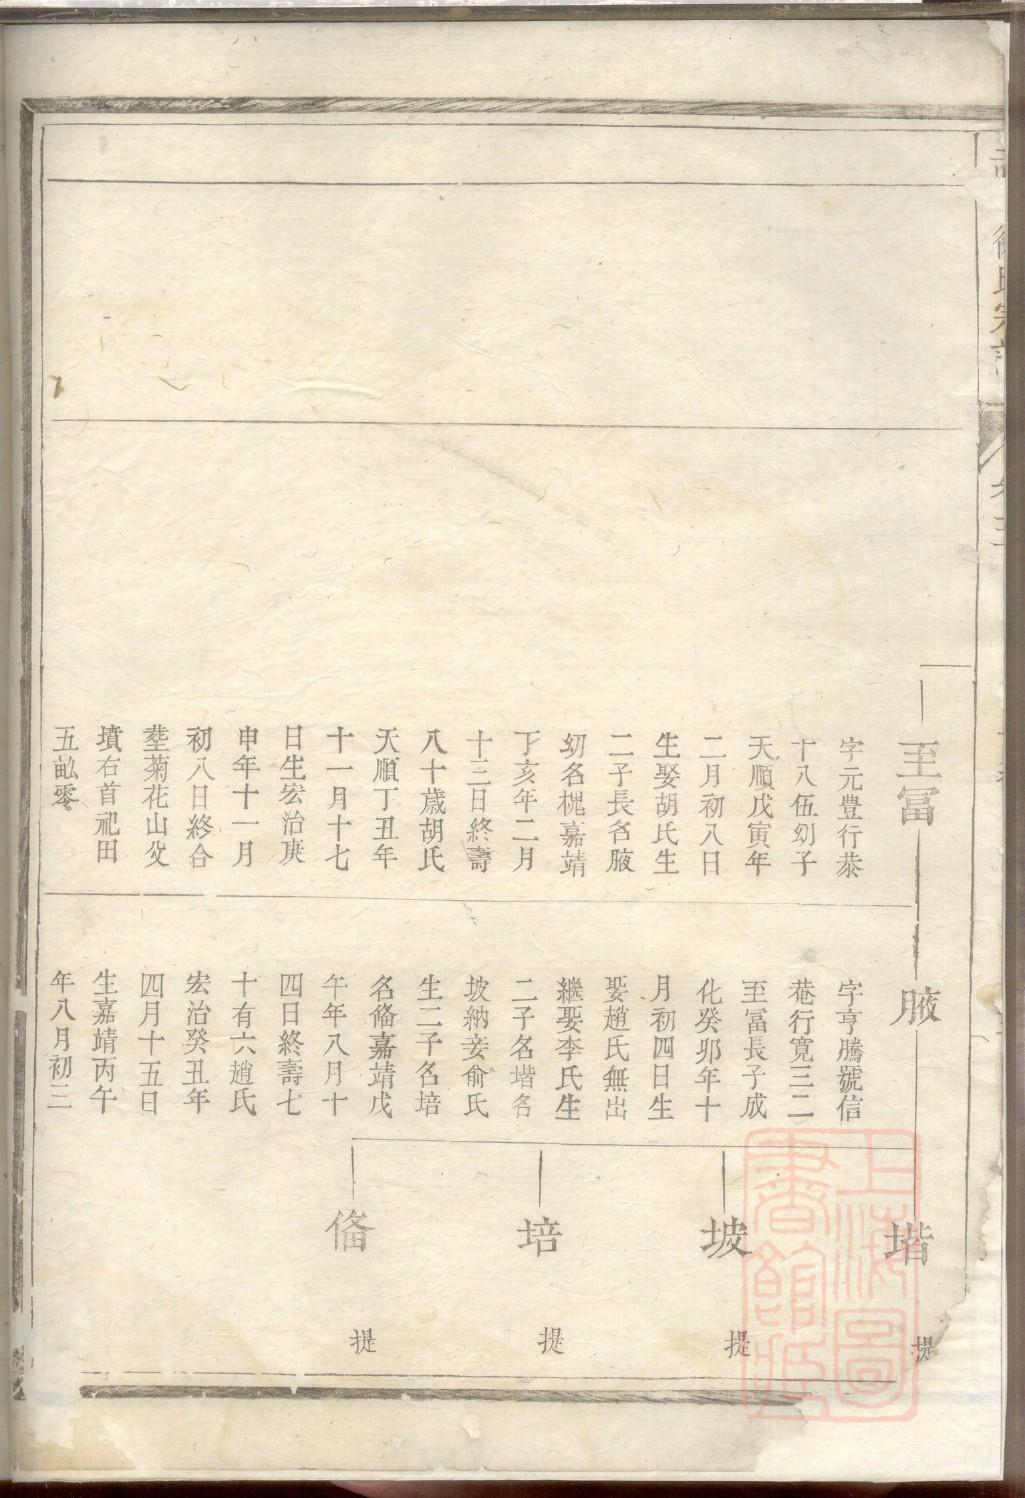 徐氏宗譜
卷五
至冨
字元豊行恭
十八伍幼子
天順戊寅年
二月初八日
生娶胡氏生
二子長名腋
幼名槐嘉靖
丁亥年二月
十三日終壽
八十歲胡氏
天順丁丑年
十一月十七
日生宏治庚
申年十一月
初八日終合
塟菊花山父
墳右首祀田
五畝零
腋
字亨騰號信
菴行寬三二
至冨長子成
化癸卯年十
月初四日生
娶趙氏無出
繼娶李氏生
二子名堦名
坡納妾俞氏
生二子名培
名俻嘉靖戊
午年八月十
四日終壽七
十有六趙氏
宏治癸丑年
四月十五日
生嘉靖丙午
年八月初三
堦
提
坡
提
培
提
俻
提
上海圖書館藏